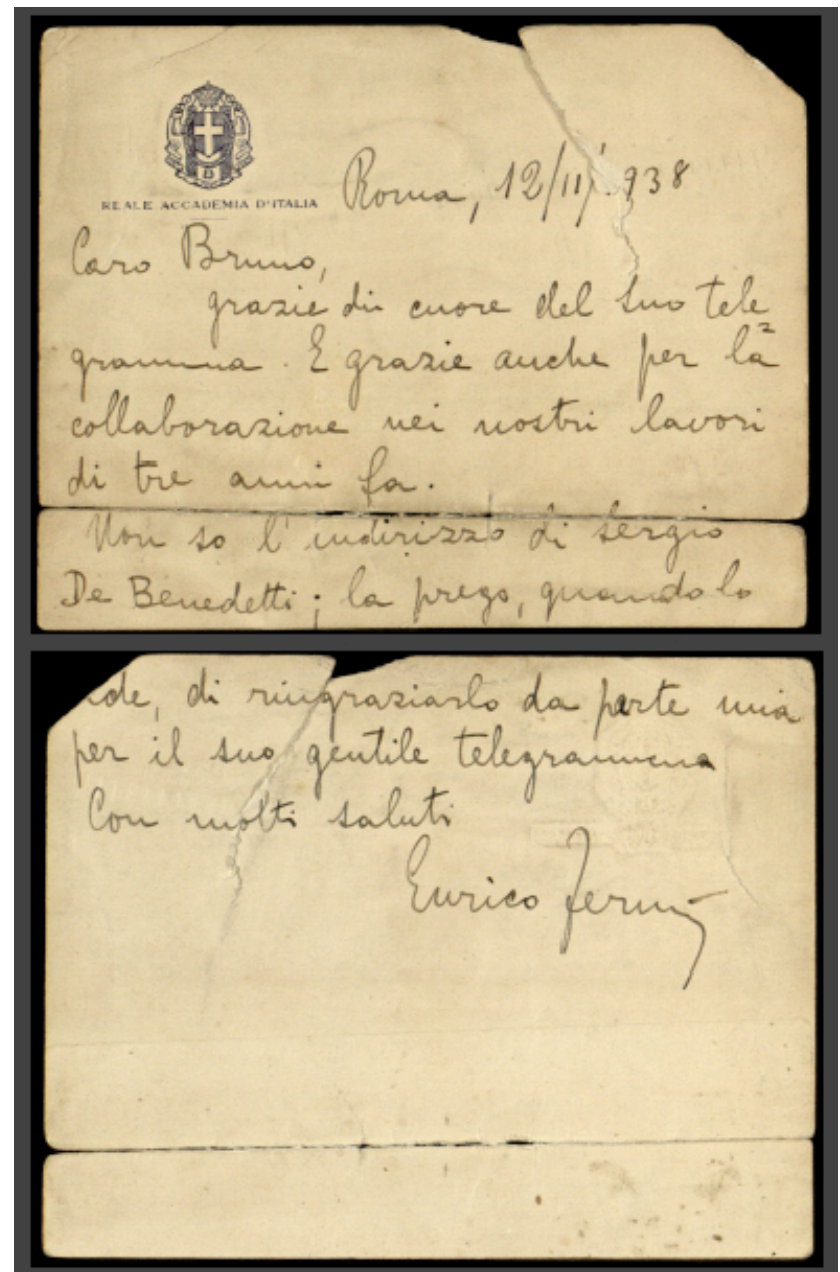 REALE ACCADEMIA D'ITALIA
Roma, 12/11/938
Caro Bruno,
grazie di cuore del suo tele=
gramma. E grazie anche per la
collaborazione nei nostri lavori
di tre anni fa.
Non so l'indirizzo di Sergio
De Benedetti; la prego, quando lo
ede, di ringraziarlo da parte mia
per il suo gentile telegramma
Con molti saluti
Enrico Fermi